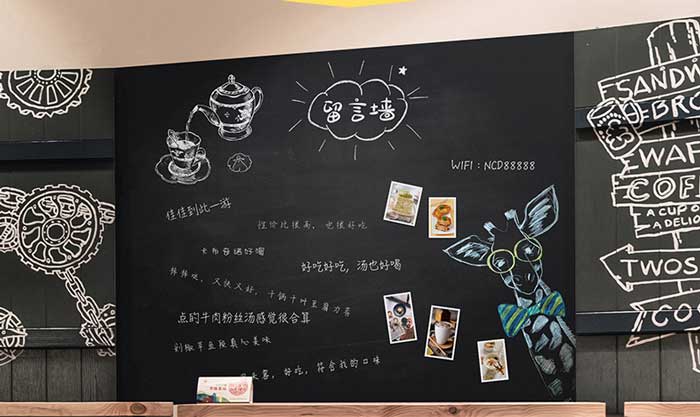 留言墙
WIFI:NCD88888
佳佳到此一游
性价比很高，也很好吃
卡布奇诺好喝
好吃好吃，汤也好喝
棒棒哒，又快又好，干锅千叶豆腐力荐
点的牛肉粉丝汤感觉很合算
剁椒芋丝段真心美味
好吃，符合我的口味
SANDW
EBRO
WAF
COF
A CUP O
A DELIO
TWOS
CO